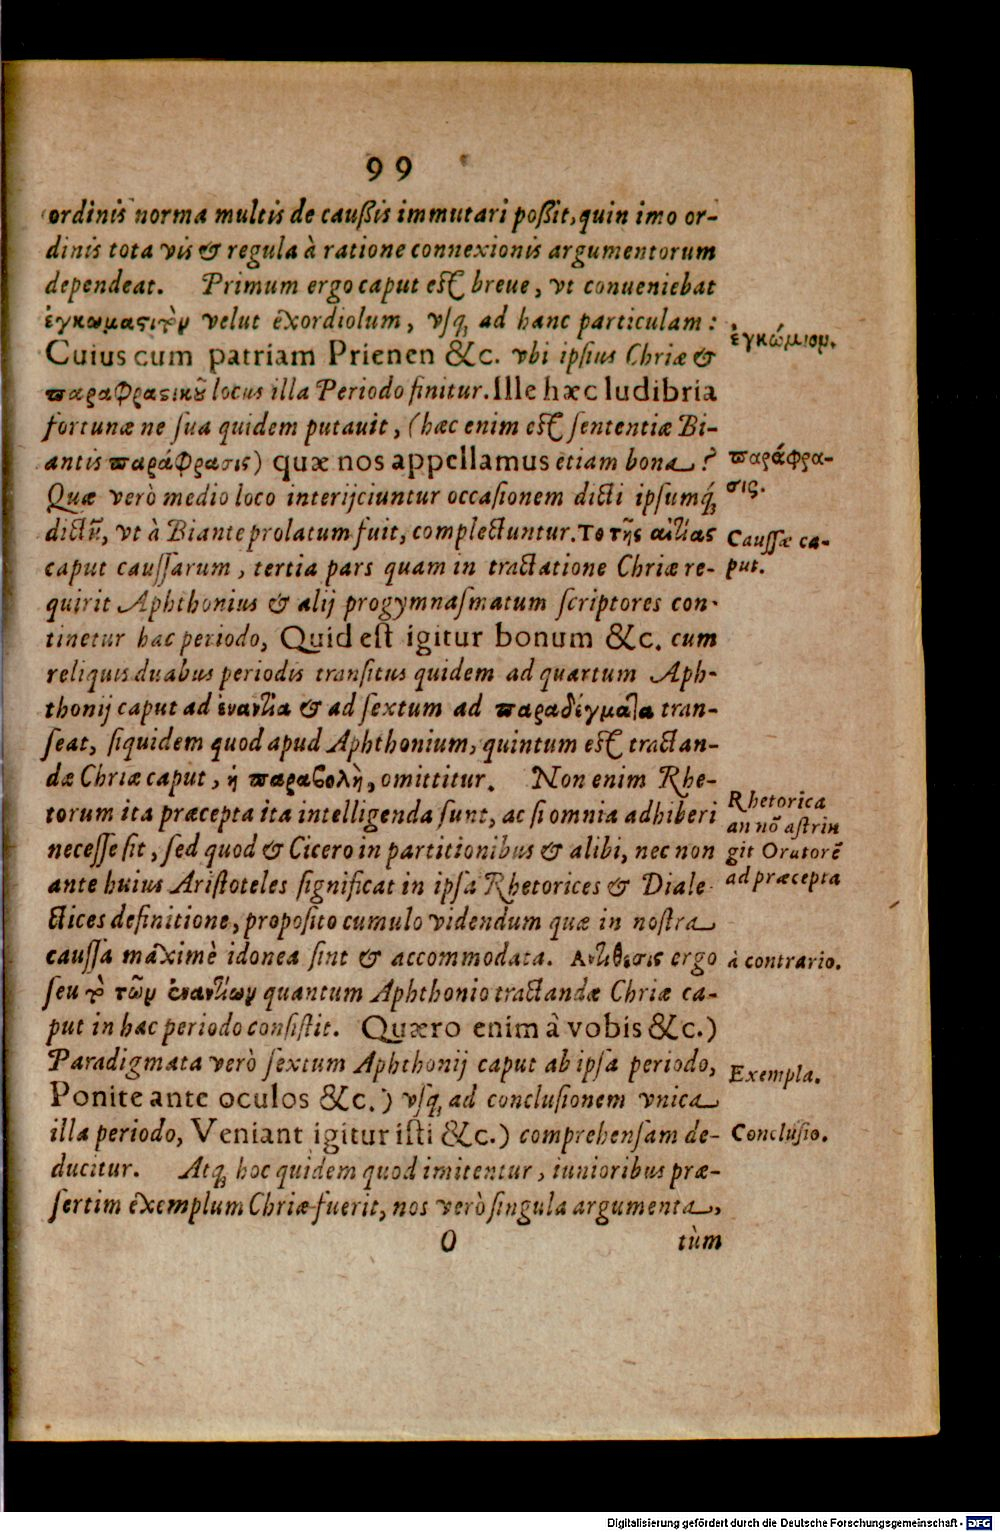 99
ordinis norma multis de caußis immutari poßit, quin imo or-
dinis tota vis & regula à ratione connexionis argumentorum
dependeat. Primum ergo caput est breue, vt conueniebat
ἐγκωμαστικὸν velut exordiolum, vsq; ad hanc particulam:
ἐγκώμιον.
Cuius cum patriam Prienen &c. vbi ipsius Chriæ &
παραφραστικοῦ locus illa Periodo finitur. Ille hæc ludibria
fortunæ ne sua quidem putauit, (hæc enim est sententiæ Bi-
antis παράφρασις) quæ nos appellamus etiam bona?
παράφρα-
σις.
Quæ verò medio loco interijciuntur occasionem dicti ipsumq́;
dictũ, vt à Biante prolatum fuit, complectuntur. Το τῆς αἰτίας
Caussæ ca-
put.
caput caussarum, tertia pars quam in tractatione Chriæ re-
quirit Aphthonius & alij progymnasmatum scriptores con-
tinetur hac periodo, Quid est igitur bonum &c. cum
reliquis duabus periodis transitus quidem ad quartum Aph-
thonij caput ad ἐναντία & ad sextum ad παραδείγματα tran-
seat, siquidem quod apud Aphthonium, quintum est tractan-
dæ Chriæ caput, ἡ παραβολὴ, omittitur. Non enim Rhe-
torum ita præcepta ita intelligenda sunt, ac si omnia adhiberi
Rhetorica
an nõ astrin
git Oratorẽ
ad præcepta
necesse sit, sed quod & Cicero in partitionibus & alibi, nec non
ante huius Aristoteles significat in ipsa Rhetorices & Diale-
ctices definitione, proposito cumulo videndum quæ in nostra
caussa maximè idonea sint & accommodata. Αντίθεσις ergo
à contrario.
seu τὸ τῶν ἐναντίων quantum Aphthonio tractandæ Chriæ ca-
put in hac periodo consistit. Quæro enim à vobis &c.)
Paradigmata verò sextum Aphthonij caput ab ipsa periodo,
Exempla.
Ponite ante oculos &c.) vsq; ad conclusionem vnica
illa periodo, Veniant igitur isti &c.) comprehensam de-
Conclusio.
ducitur. Atq; hoc quidem quod imitentur, iunioribus præ-
sertim exemplum Chriæ fuerit, nos verò singula argumenta,
O tùm
Digitalisierung gefördert durch die Deutsche Forschungsgemeinschaft - DFG